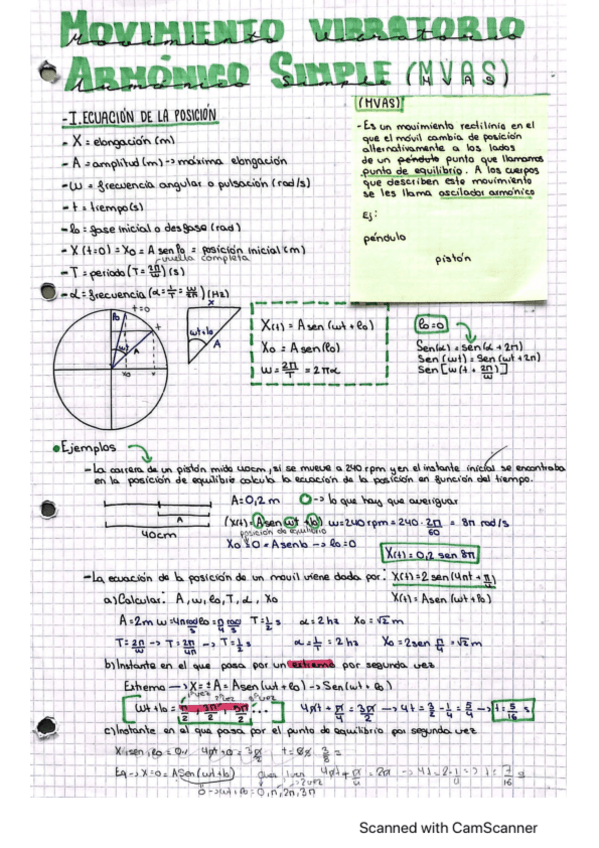 MOVIMIENTO VIBRATORIO
ARMÓNICO SIMPLE (MVAS)
- I. ECUACIÓN DE LA POSICIÓN
- X = elongación (m)
- A = amplitud (m) -> máxima elongación
- ω = frecuencia angular o pulsación (rad/s)
- t = tiempo (s)
- φ0 = fase inicial o desfase (rad)
- X (t=0) = X0 = A sen φ0 = posición inicial (m)
vuelta completa
- T = periodo (T = 2π/ω) (s)
- α = frecuencia (α = 1/T = ω/2π) (Hz)
(MVAS)
- Es un movimiento rectilíneo en el
que el móvil cambia de posición
alternativamente a los lados
de un péndulo punto que llamamos
punto de equilibrio. A los cuerpos
que describen este movimiento
se les llama oscilador armónico
Ej:
péndulo
pistón
φ0 t=0
t
ωt
A
x0 x
x
ωt+φ0
A
X(t) = A sen (ωt + φ0)
X0 = A sen (φ0)
ω = 2π/T = 2πα
φ0=0
Sen(α) = sen (α + 2π)
Sen (ωt) = Sen (ωt + 2π)
Sen [ω (t + 2π/ω)]
Ejemplos
- La carrera de un pistón mide 40cm, si se mueve a 240 rpm y en el instante inicial se encontraba
en la posición de equilibrio calcula la ecuación de la posición en función del tiempo.
A
40cm
A=0,2 m O -> lo que hay que averiguar
(X(t) = A sen ωt + φ0) ω=240 rpm = 240 · 2π/60 = 8π rad/s
posición de equilibrio
X0 = 0 = A sen φ0 -> φ0=0
X(t) = 0,2 sen 8π
- La ecuación de la posición de un movil viene dada por: X(t) = 2 sen (4πt + π/4)
a) Calcular: A, ω, φ0, T, α, X0
X(t) = A sen (ωt + φ0)
A=2m ω=4π rad/s φ0=π/4 rad T=1/2 s α=2hz X0=√2 m
T=2π/ω -> T=2π/4π -> T=1/2 s α=1/T = 2hz X0=2sen π/4 = √2 m
b) Instante en el que pasa por un extremo por segunda vez
Extremo -> X=±A = A sen (ωt + φ0) -> Sen (ωt + φ0)
ωt+φ0 = π/2, 3π/2, 5π/2 ... 4πt + π/4 = 3π/2 -> 4t = 3/2 - 1/4 = 5/4 -> t = 5/16 s
c) Instante en el que pasa por el punto de equilibrio por segunda vez
Eq -> X=0 = A sen (ωt+φ0)
0 -> ωt+φ0 = 0, π, 2π, 3π
Scanned with CamScanner